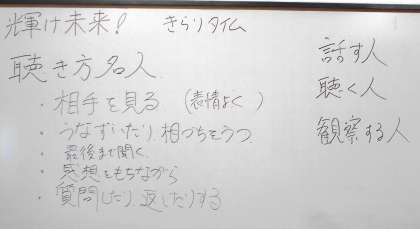 輝け未来! きらりタイム
聴き方名人
・相手を見る (表情よく )
・うなずいたり、相づちをうつ
・最後まで聞く
・感想をもちながら
・質問したり、返したりする
話す人
聴く人
観察する人